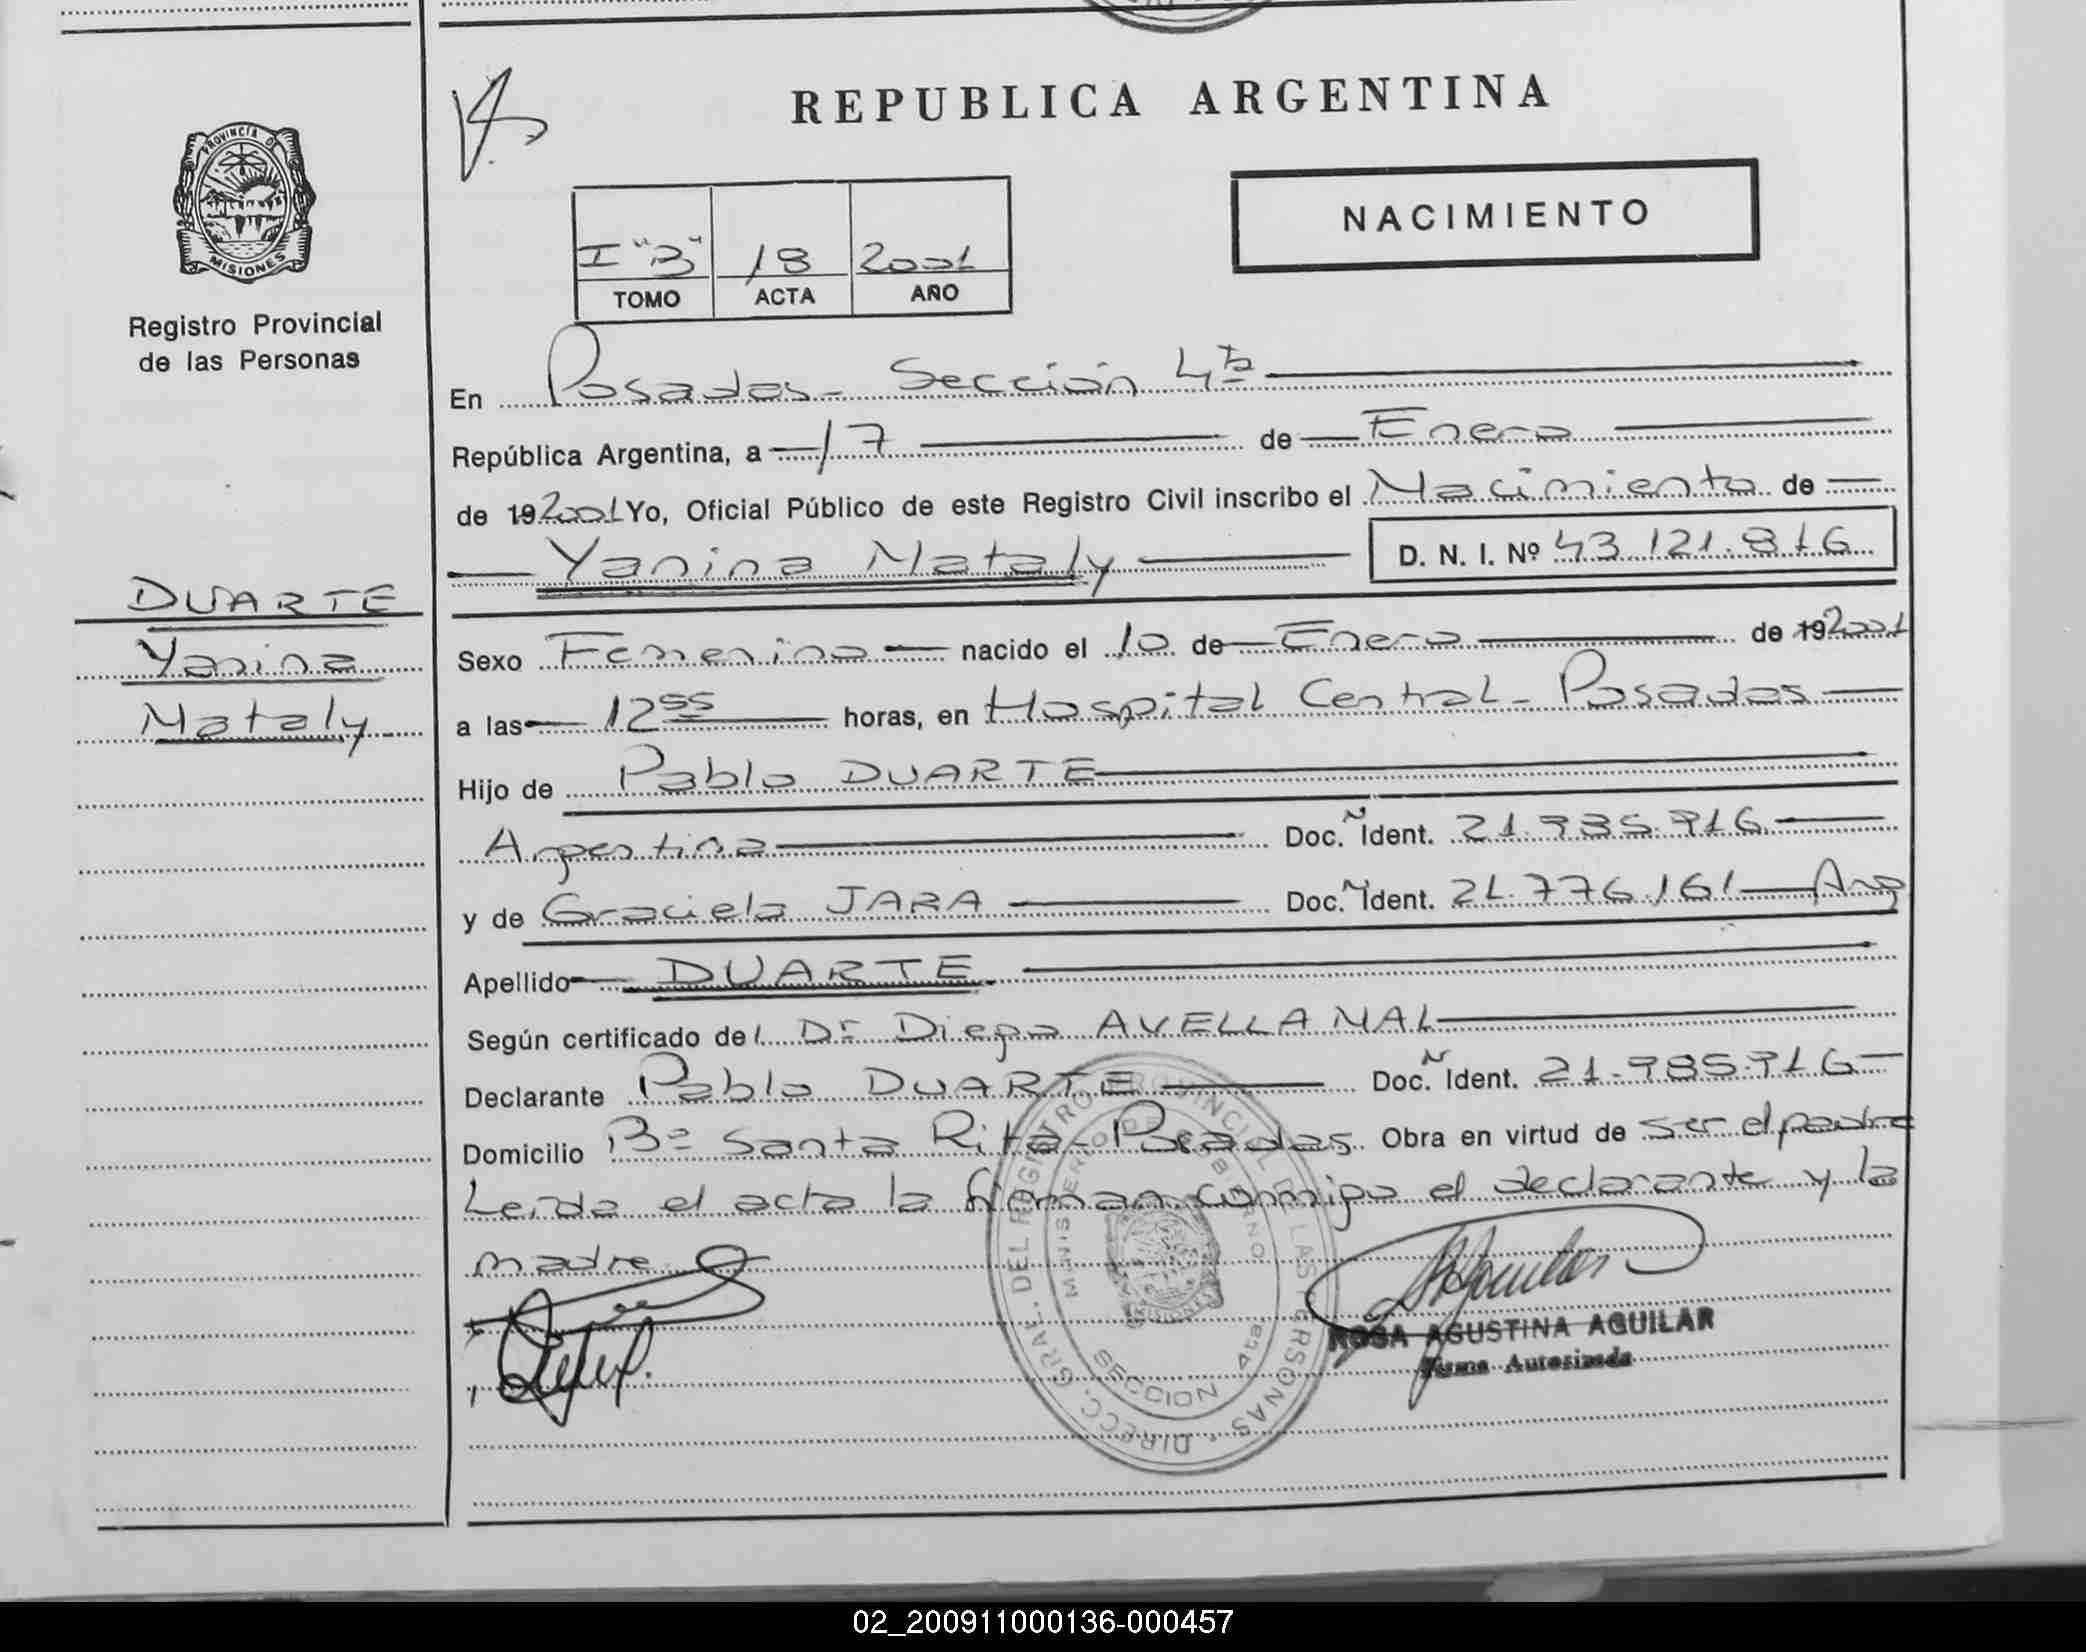 PROVINCIA DE
MISIONES
Registro Provincial
de las Personas
DUARTE
Yanina
Nataly
REPUBLICA ARGENTINA
I "B" 18 2001
TOMO ACTA AÑO
NACIMIENTO
En Posadas - Sección 4ta
República Argentina, a 17 de Enero
de 192001 Yo, Oficial Público de este Registro Civil inscribo el Nacimiento de
Yanina Nataly D. N. I. Nº 43.121.816
Sexo Femenino nacido el 10 de Enero de 192001
a las 12 55 horas, en Hospital Central - Posadas
Hijo de Pablo DUARTE
Argentina Doc. Ñ Ident. 21.985.916
y de Graciela JARA Doc. Ñ Ident. 21.776.161 Arg
Apellido DUARTE
Según certificado del Dr Diego AVELLANAL
Declarante Pablo DUARTE Doc. Ñ Ident. 21.985.916
Domicilio Bº Santa Rita - Posadas Obra en virtud de ser el padre
Leída el acta la firman conmigo el declarante y la
madre
DIRECC. GRAL. DEL REGISTRO PROVINCIAL DE LAS PERSONAS
MINISTERIO DE GOBIERNO
MISIONES
SECCION 4ta
ROSA AGUSTINA AGUILAR
Firma Autorizada
02_200911000136-000457